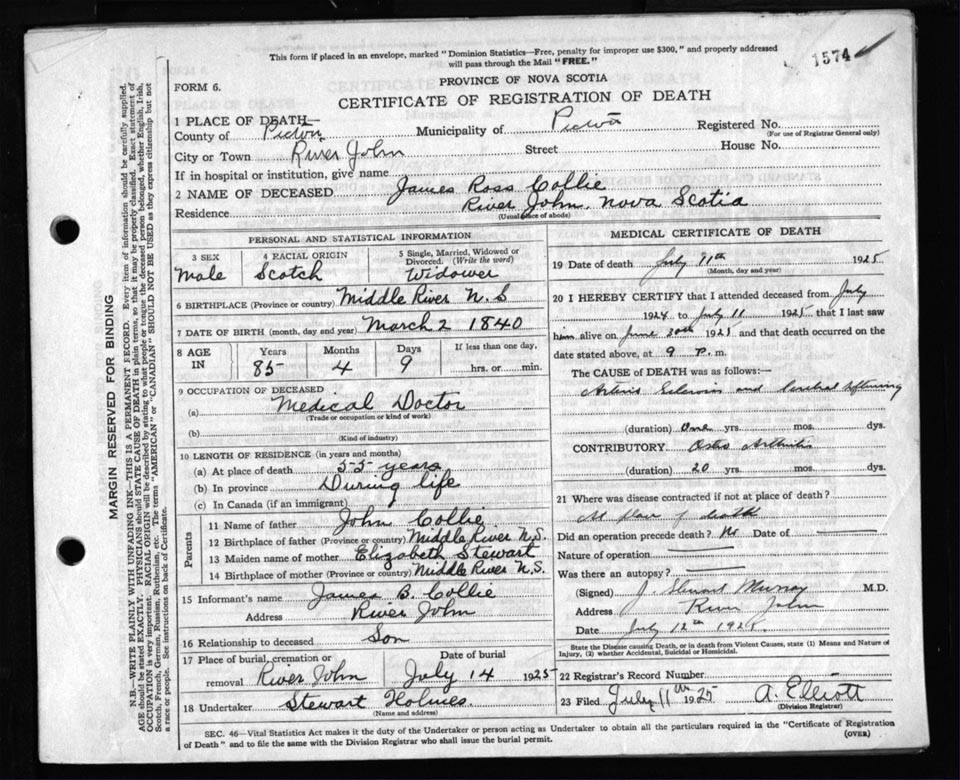 This form if placed in an envelope, marked "Dominion Statistics—Free, penalty for improper use $300," and properly addressed
will pass through the Mail "FREE."
1574
FORM 6.
PROVINCE OF NOVA SCOTIA
CERTIFICATE OF REGISTRATION OF DEATH
1 PLACE OF DEATH—
County of Pictou Municipality of Pictou Registered No.
(For use of Registrar General only)
City or Town River John Street House No.
If in hospital or institution, give name
2 NAME OF DECEASED James Ross Collie
Residence River John. Nova Scotia
(Usual place of abode)
PERSONAL AND STATISTICAL INFORMATION
3 SEX 4 RACIAL ORIGIN 5 Single, Married, Widowed or Divorced. (Write the word)
Male Scotch Widower
6 BIRTHPLACE (Province or country) Middle River N.S
7 DATE OF BIRTH (month, day and year) March 2 1840
8 AGE IN Years Months Days If less than one day,
85 4 9 hrs. or min.
9 OCCUPATION OF DECEASED
(a) Medical Doctor
(Trade or occupation or kind of work)
(b)
(Kind of industry)
10 LENGTH OF RESIDENCE (in years and months)
(a) At place of death 55 years
(b) In province During life
(c) In Canada (if an immigrant)
Parents
11 Name of father John Collie
12 Birthplace of father (Province or country) Middle River N.S.
13 Maiden name of mother Elizabeth Stewart
14 Birthplace of mother (Province or country) Middle River N.S.
15 Informant's name James B. Collie
Address River John
16 Relationship to deceased Son
17 Place of burial, cremation or removal River John Date of burial July 14 1925
18 Undertaker Stewart Holmes
(Name and address)
MEDICAL CERTIFICATE OF DEATH
19 Date of death July 11th 1925
(Month, day and year)
20 I HEREBY CERTIFY that I attended deceased from July
1924 to July 11 1925 that I last saw
him alive on June 30th 1925 and that death occurred on the
date stated above, at 9 P. m.
The CAUSE of DEATH was as follows:—
Arterio Sclerosis and Cerebral Softening
(duration) One yrs. mos. dys.
CONTRIBUTORY Osteo Arthritis
(duration) 20 yrs. mos. dys.
21 Where was disease contracted if not at place of death?
At place of death
Did an operation precede death? No Date of
Nature of operation
Was there an autopsy?
(Signed) J. Stewart Murray M.D.
Address River John
Date July 12th 1925
State the Disease causing Death, or in death from Violent Causes, state (1) Means and Nature of
Injury, (2) whether Accidental, Suicidal or Homicidal.
22 Registrar's Record Number
23 Filed July 11th 1925 A. Elliott
(Division Registrar)
SEC. 46—Vital Statistics Act makes it the duty of the Undertaker or person acting as Undertaker to obtain all the particulars required in the "Certificate of Registration
of Death" and to file the same with the Division Registrar who shall issue the burial permit. (OVER)
MARGIN RESERVED FOR BINDING
N.B.—WRITE PLAINLY WITH UNFADING INK—THIS IS A PERMANENT RECORD. Every item of information should be carefully supplied.
AGE should be stated EXACTLY. PHYSICIANS should STATE CAUSE OF DEATH in plain terms, so that it may be properly classified. Exact statement of
OCCUPATION is very important. RACIAL ORIGIN will be described by stating to what people or tongue the deceased person belonged, whether English, Irish,
Scotch, French, German, Russian, Ruthenian, etc. The terms "AMERICAN" or "CANADIAN" SHOULD NOT BE USED as they express citizenship but not
a race or people. See instructions on back of Certificate.